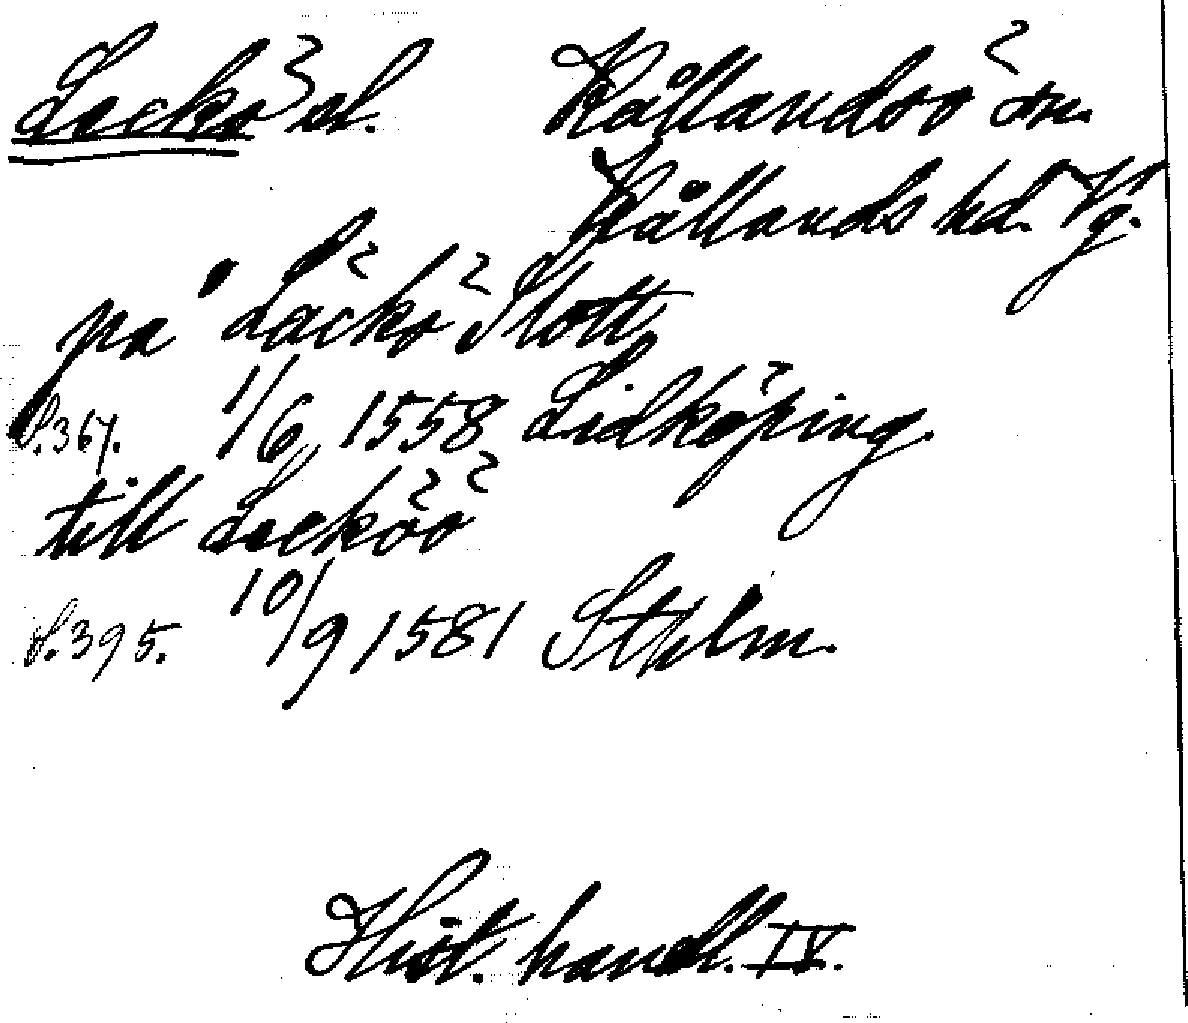 Läckö sl. Kållandsö sn.
Kållands hd. Vg.
på Läckö Slott
S.367. 1/6 1558 Lidköping.
till Lecköö
S.395. 10/9 1581 Sthlm.
Hist. handl. IV.